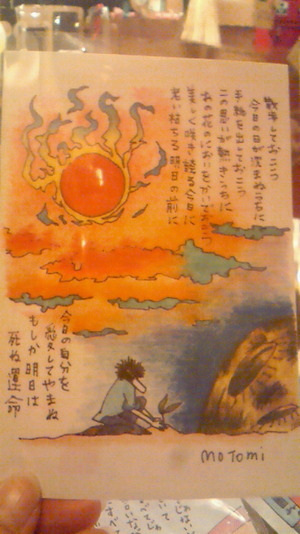 散歩しておこう
今日の日が沈まぬうちに
手紙を出しておこう
この思いが熱きうちに
あの花のにおいをかいでおこう
美しく咲き誇る今日に
思い描ける明日の前に
今日の自分を
愛してやまぬ
もしか明日は
死ぬ運命
MOTOMI